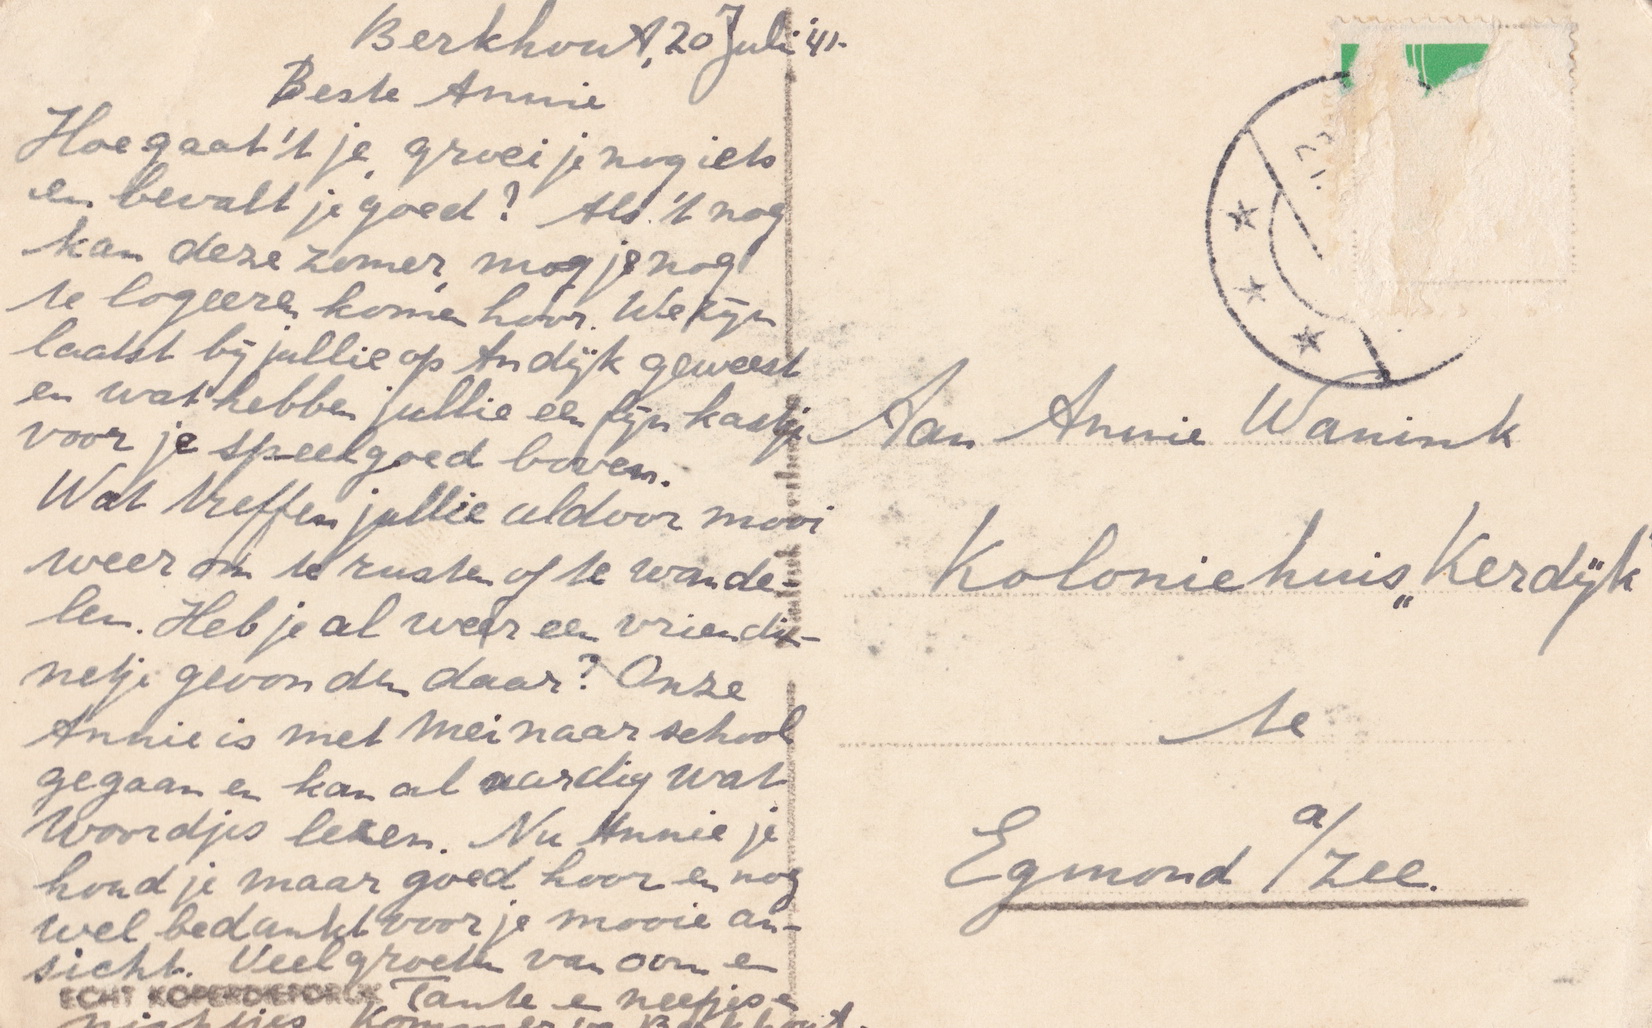 Berkhout, 20 Juli '41.
Beste Annie
Hoe gaat 't je, groei je nog iets
en bevalt je goed? Als 't nog
kan deze zomer, mog je nog
te logeeren komen hoor. We zijn
laatst bij jullie op Andijk geweest
en wat hebben jullie een fijn kastje
voor je speelgoed boven.
Wat treffen jullie aldoor mooi
weer om te rusten of te wande-
len. Heb je al weer een vriendin-
netje gevonden daar? Onze
Annie is met Mei naar school
gegaan en kan al aardig wat
woordjes lezen. Nu Annie je
houd je maar goed hoor en nog
wel bedankt voor je mooie an-
sicht. Veel groeten van oom en
Tante en neefjes en
nichtjes Berkhout.
ECHT KOPERDIEPDRUK
Aan Annie Wanink
Koloniehuis „Kerdijk"
te
Egmond a/zee.